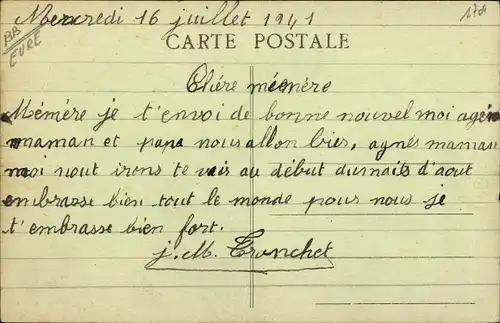 Mercredi 16 juillet 1941
BB
EURE
CARTE POSTALE
Chére mémère
Mémére je t'envoi de bonne nouvel moi agén
maman et papa nous allon bier, agnes maman
moi nout irons te voir au début du mois d'aout
embrasse bien tout le monde pour nous je
t'embrasse bien fort.
J.M. Tronchet